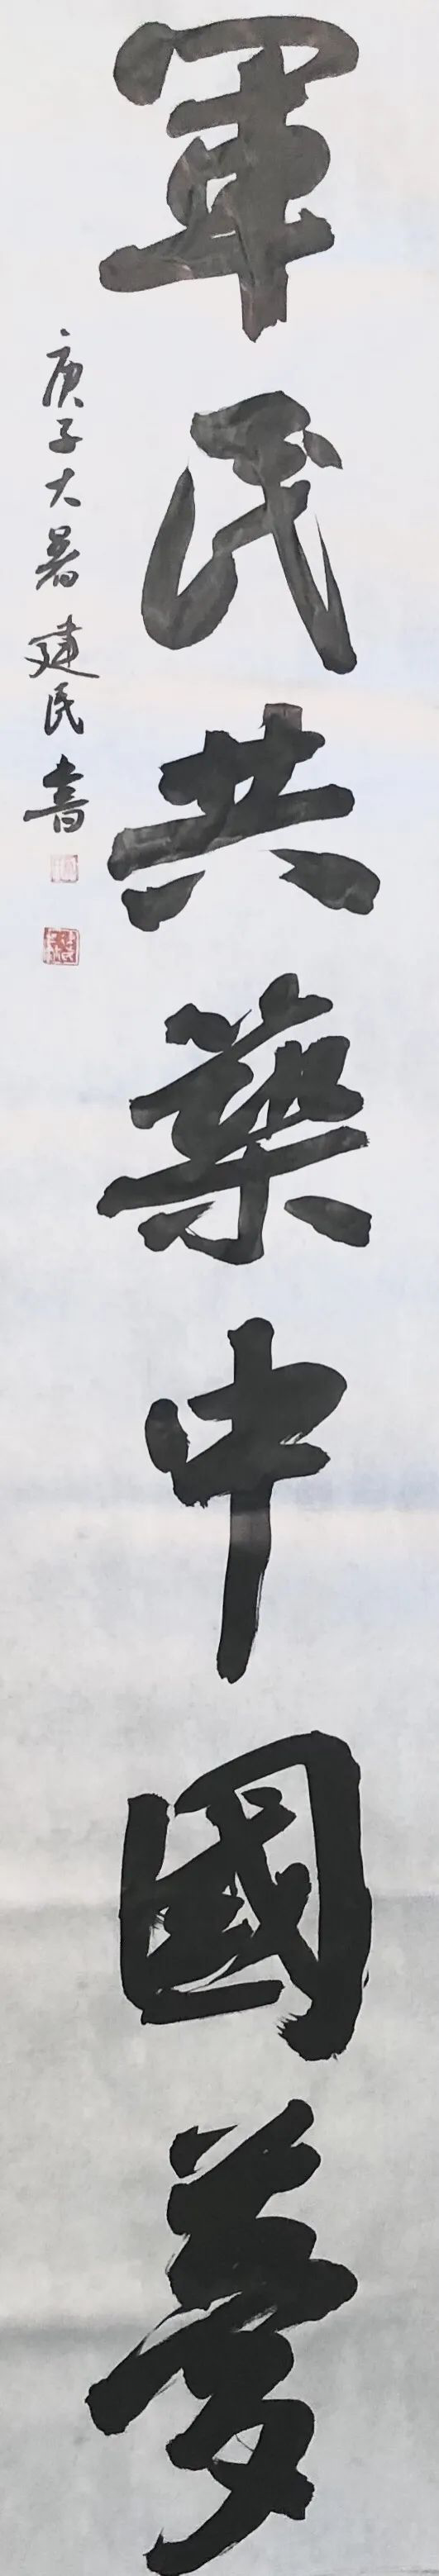 軍民共築中國夢
庚子大暑建民書